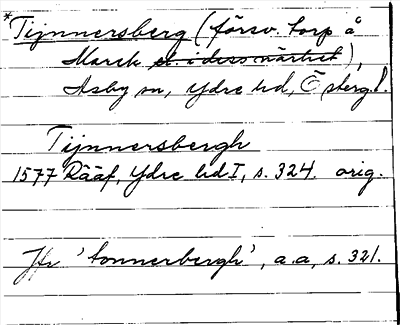 *Tijnnersberg (försv. torp å
Marek el. i dess närhet),
Asby sn, Ydre hd, Östergl.
Tijnnersbergh
1577 Rääf, Ydre hd I, s. 324. orig.
Jfr 'tonnerbergh', a.a, s. 321.